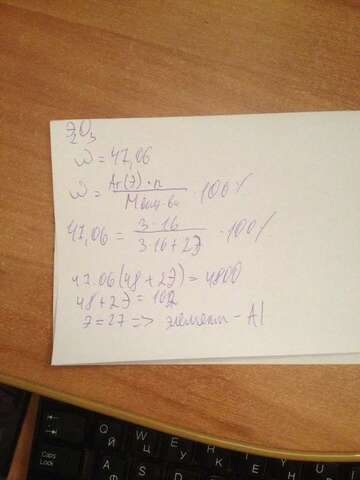 Э₂O₃
ω = 47,06
ω = Ar(Э)·n / Mвещ-ва · 100%
47,06 = 3·16 / 3·16+2Э · 100%
47.06(48+2Э) = 4800
48+2Э = 102
Э = 27 => элемент - Al
Caps Lock
Q Й
W Ц
E У
A Ф
S
D